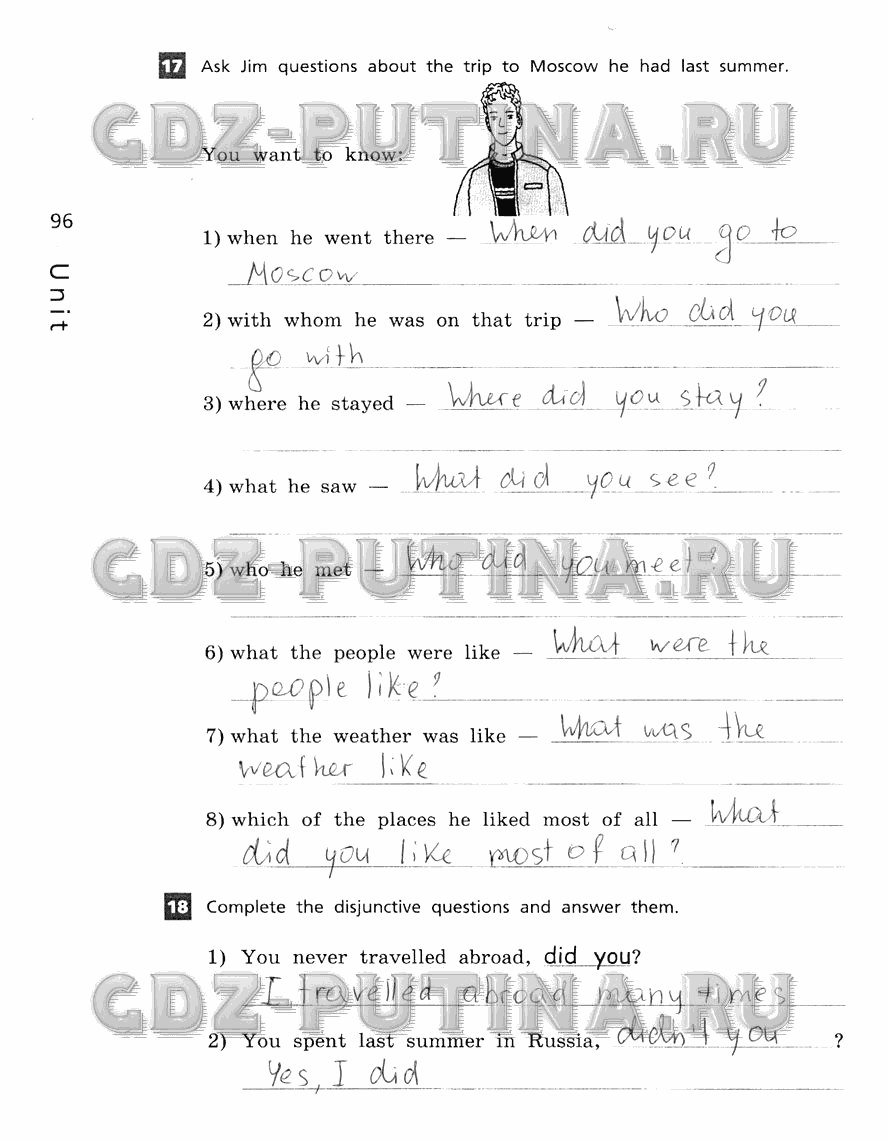 17 Ask Jim questions about the trip to Moscow he had last summer.
GDZ-PUTINA.RU
You want to know:
96
Unit
1) when he went there — When did you go to
Moscow
2) with whom he was on that trip — Who did you
go with
3) where he stayed — Where did you stay?
4) what he saw — What did you see?
GDZ-PUTINA.RU
5) who he met — Who did you meet?
6) what the people were like — What were the
people like?
7) what the weather was like — What was the
weather like
8) which of the places he liked most of all — What
did you like most of all?
18 Complete the disjunctive questions and answer them.
1) You never travelled abroad, did you?
GDZ-PUTINA.RU
I travelled abroad many times
2) You spent last summer in Russia, didn't you ?
Yes, I did